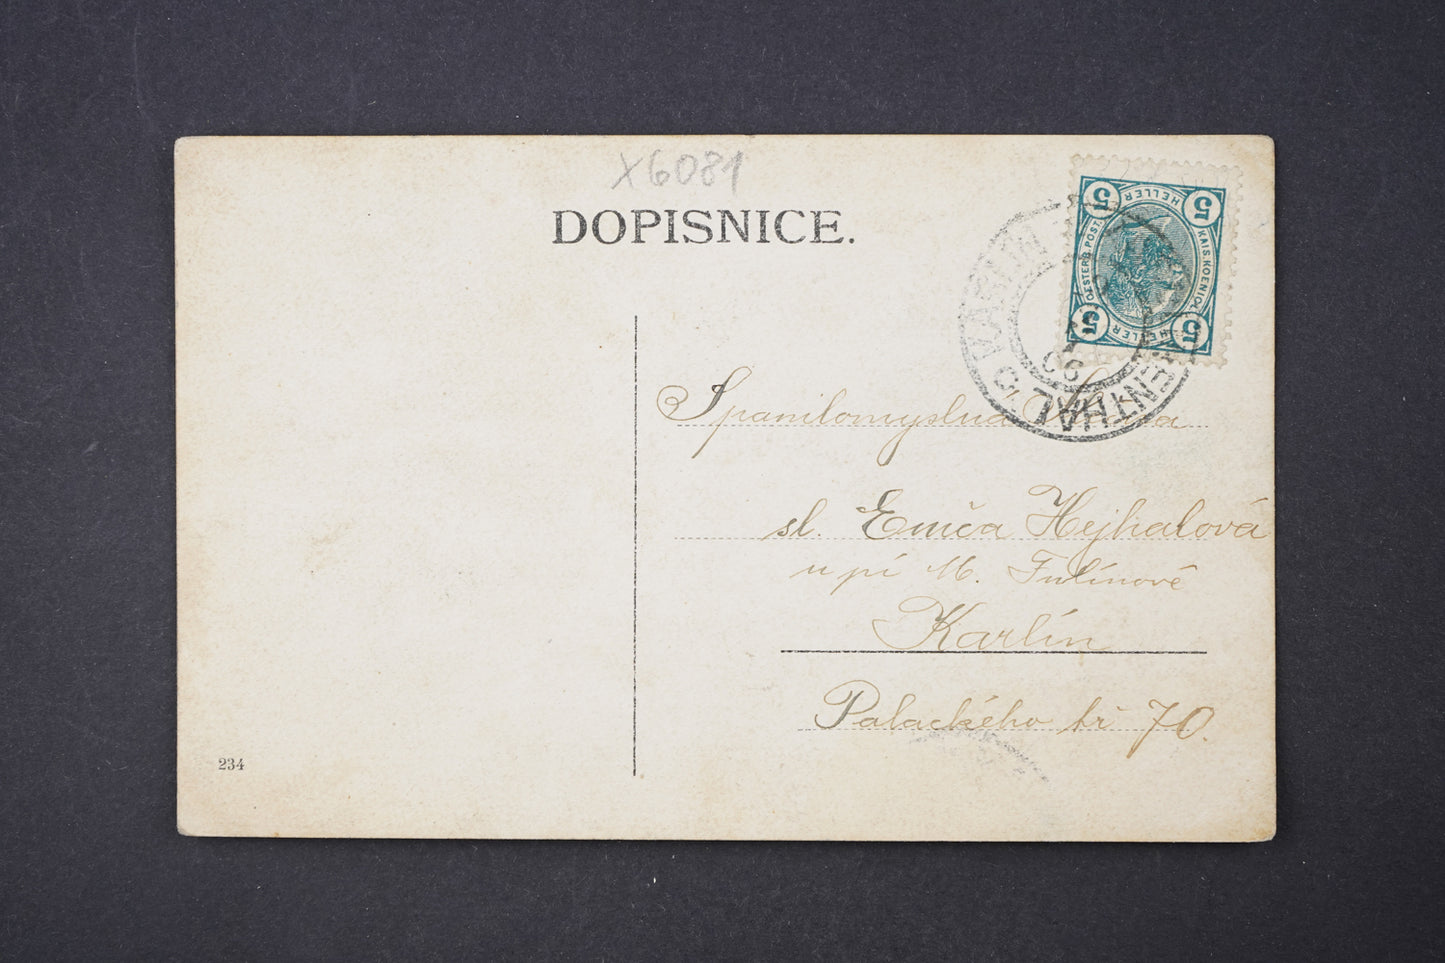 X6081
DOPISNICE.
5 HELLER 5
OESTERR. POST. KAIS. KOENIGL.
5 HELLER 5
KARLÍN
06
Spanilomyslná
sl. Emča Hejhalová
u pí M. Fulínové
Karlín
Palackého tř 70.
234